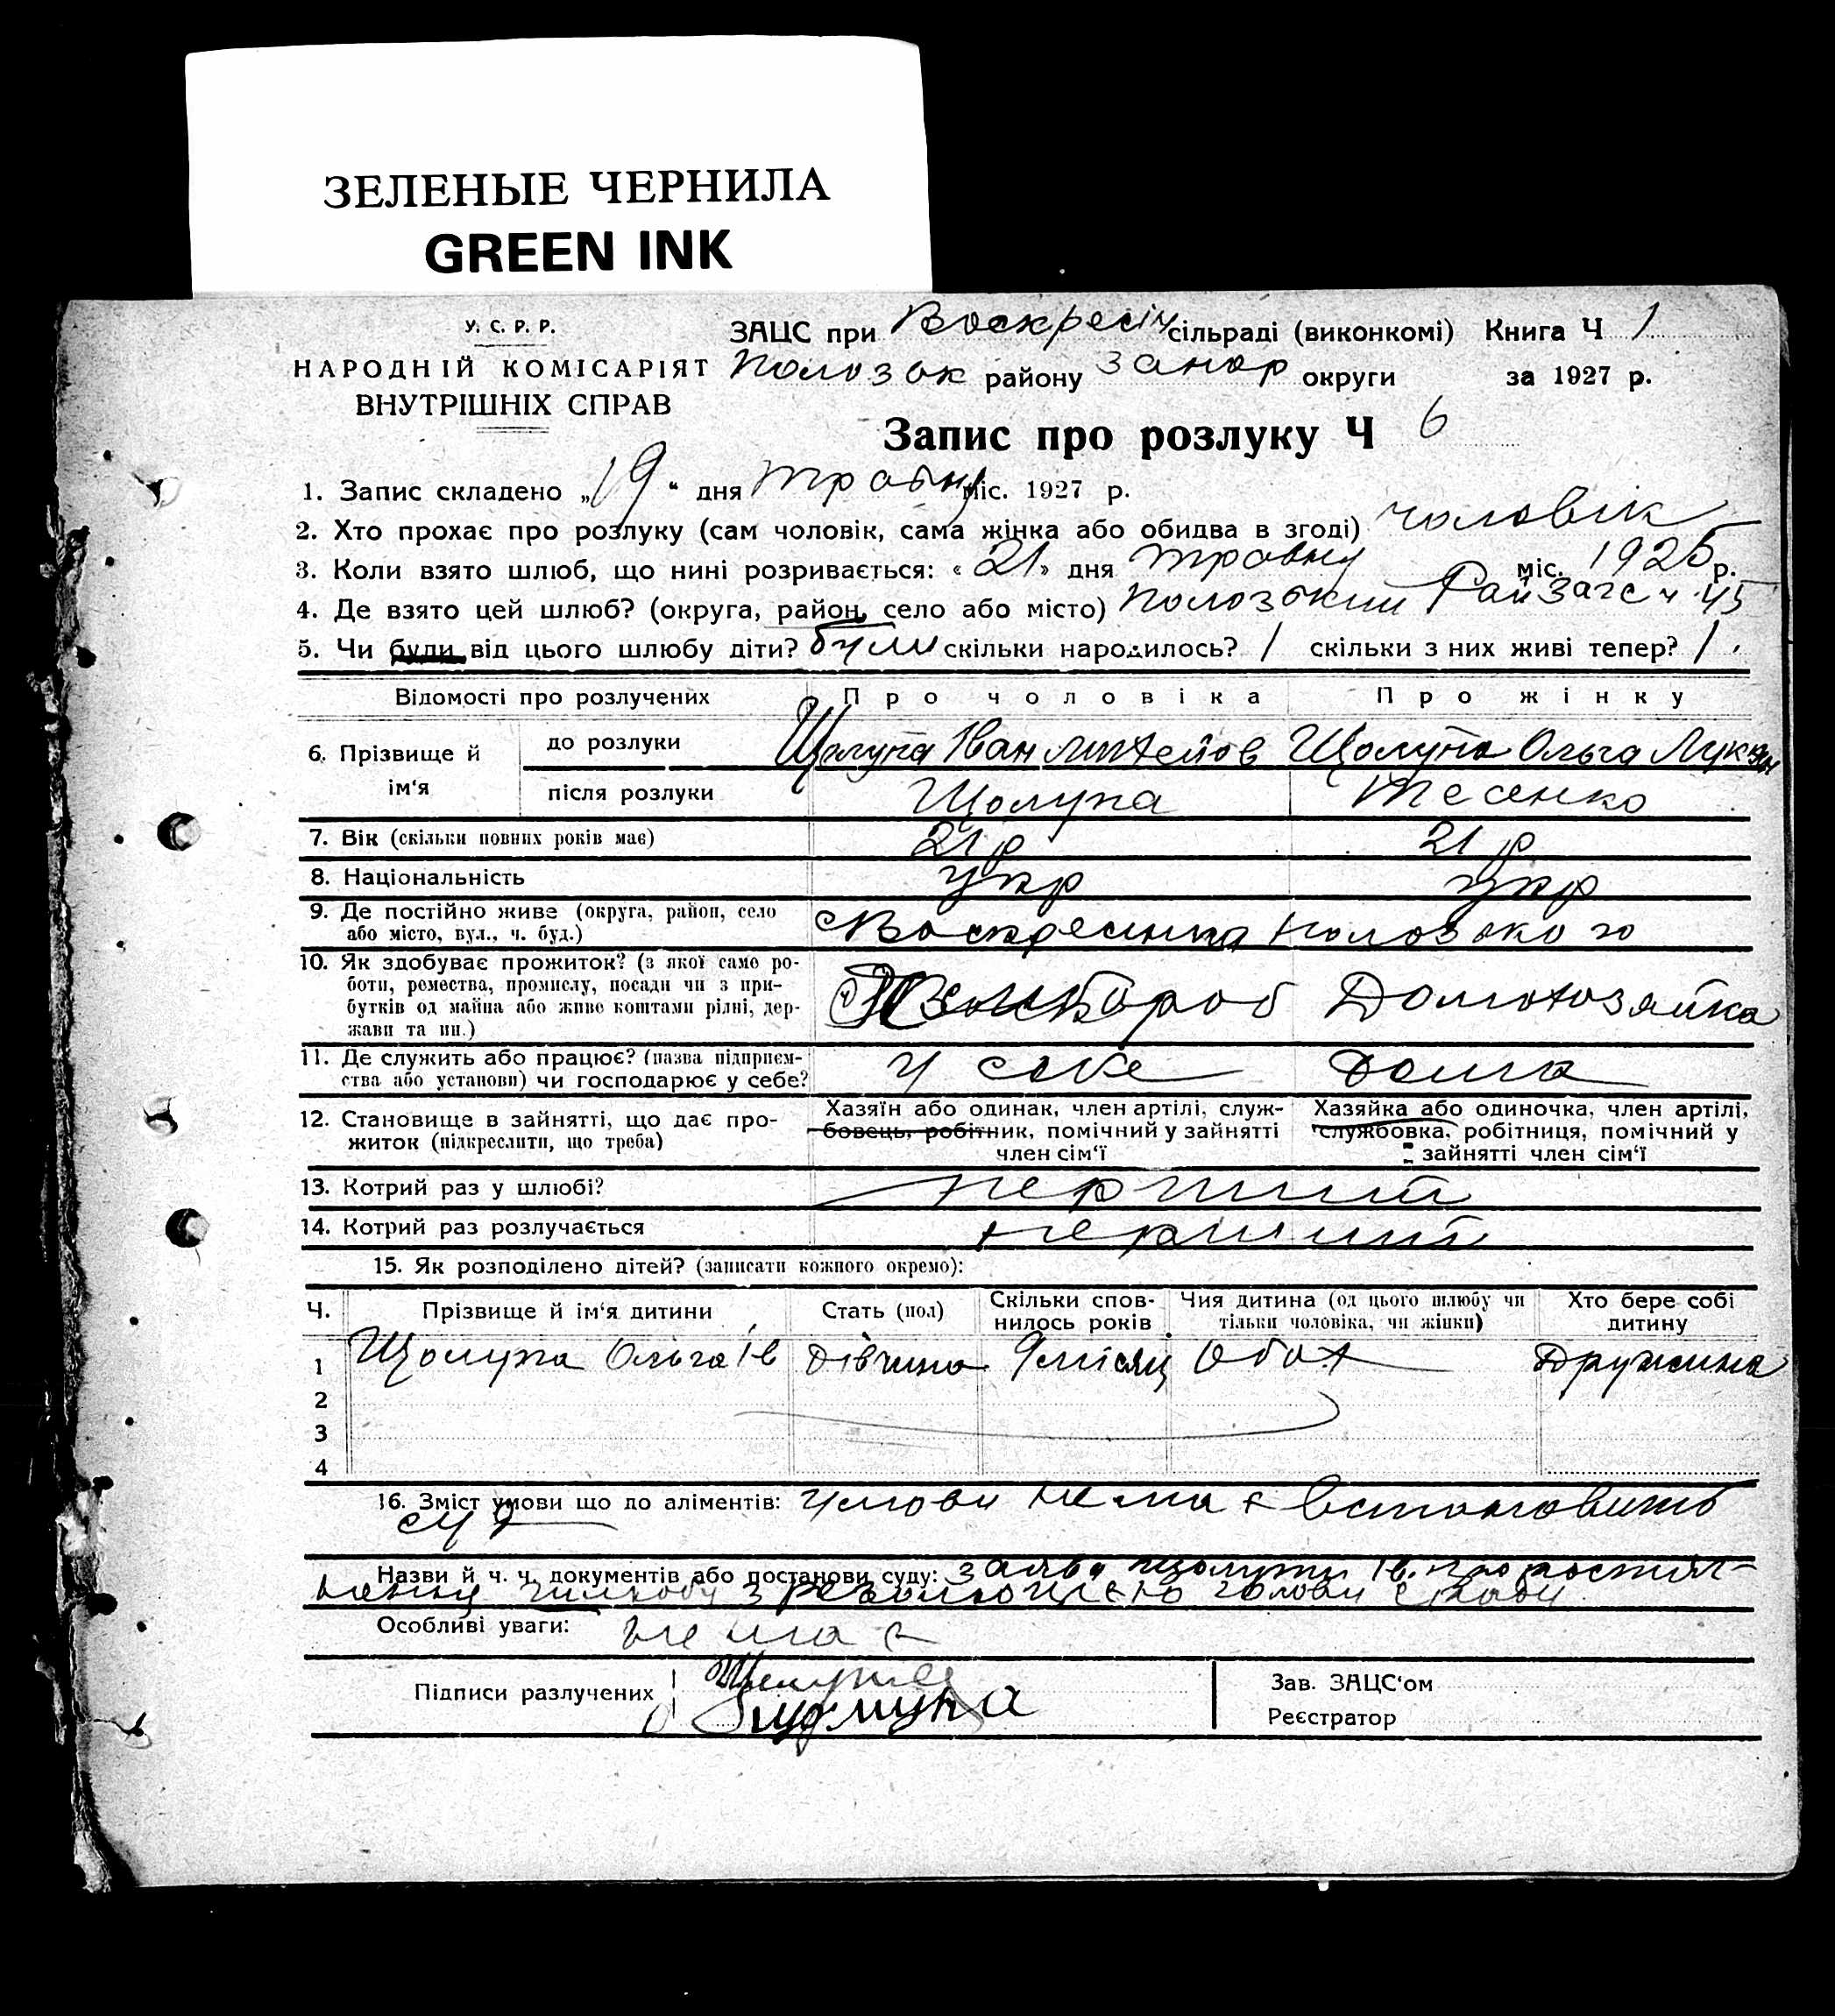 ЗЕЛЕНЫЕ ЧЕРНИЛА
GREEN INK
У. С. Р. Р.
НАРОДНІЙ КОМІСАРІЯТ
ВНУТРІШНІХ СПРАВ
ЗАЦС при Воскресін сільраді (виконкомі) Книга Ч 1
Полозьк району Запор округи за 1927 р.
Запис про розлуку Ч 6
1. Запис складено „19“ дня травня міс. 1927 р.
2. Хто прохає про розлуку (сам чоловік, сама жінка або обидва в згоді) чоловік
3. Коли взято шлюб, що нині розривається: «21» дня травня міс. 1925 р.
4. Де взято цей шлюб? (округа, район, село або місто) Полозький Райзагс ч 45
5. Чи були від цього шлюбу діти? були скільки народилось? 1 скільки з них живі тепер? 1.
Відомості про розлучених Про чоловіка Про жінку
6. Прізвище й ім‘я до розлуки Щолупа Іван Щолупа Ольга Лукян
після розлуки Щолупа Тесенко
7. Вік (скільки повних років має) 21 р 21 р
8. Національність укр укр
9. Де постійно живе (округа, район, село
або місто, вул., ч. буд.) Воскресинка Полозького
10. Як здобуває прожиток? (з якої саме ро-
боти, ремества, промислу, посади чи з при-
бутків од майна або живе коштами рідні, дер-
жави та ин.) Домохозяйка
11. Де служить або працює? (назва підприєм-
ства або установи) чи господарює у себе? у себе дома
12. Становище в зайнятті, що дає про-
житок (підкреслити, що треба)
Хазяїн або одинак, член артілі, служ-
бовець, робітник, помічний у зайнятті
член сім‘ї
Хазяйка або одиночка, член артілі,
службовка, робітниця, помічний у
зайнятті член сім‘ї
13. Котрий раз у шлюбі? перший
14. Котрий раз розлучається перший
15. Як розподілено дітей? (записати кожного окремо):
Ч. Прізвище й ім‘я дитини Стать (пол) Скільки спов-
нилось років Чия дитина (од цього шлюбу чи
тільки чоловіка, чи жінки) Хто бере собі
дитину
1 Щолупа Ольга Ів Дівчина 9 місяц Обох Дружина
2
3
4
16. Зміст умови що до аліментів: умови немає встановить
суд
Назви й ч. ч. документів або постанови суду: заява Щолупи Ів. про
шлюбу з резолюцією голови
Особливі уваги: немає
Підписи разлучених Щолупа
Зав. ЗАЦС‘ом
Реєстратор